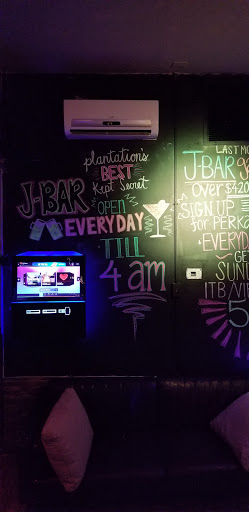 plantation's
BEST
Kept Secret
J-BAR
OPEN
EVERYDAY
TILL
4 am
LAST MO
J-BAR
Over $420
SIGN UP
for PERK
EVERY
GE
SUN
ITB
5